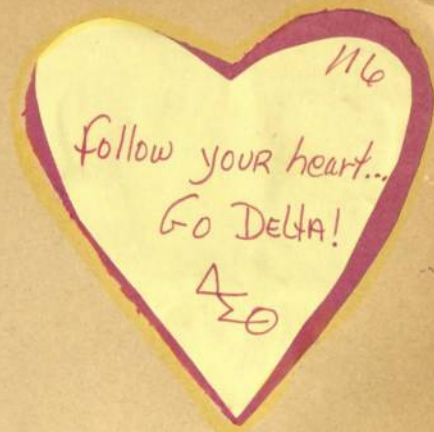 116
follow your heart...
Go Delta!
ΔΣΘ